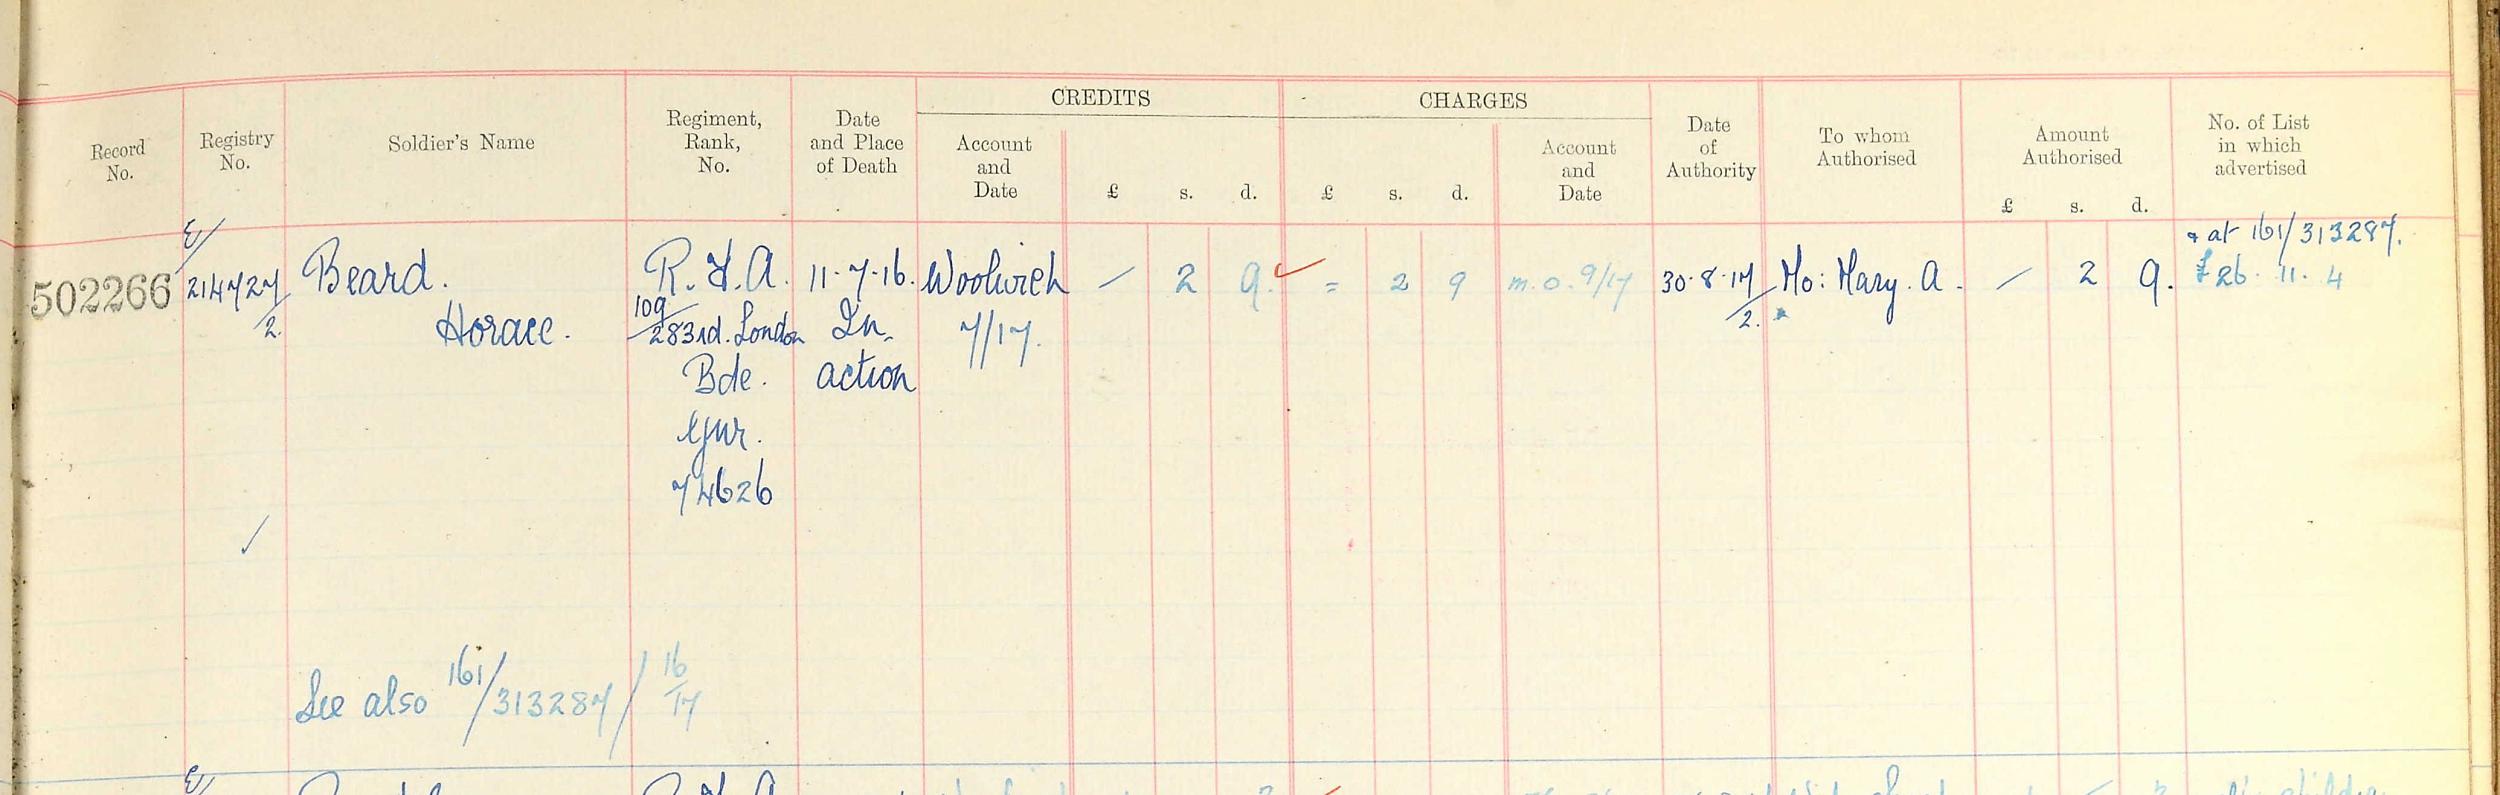 CREDITS CHARGES
Record No.
Registry No.
Soldier's Name
Regiment, Rank, No.
Date and Place of Death
Account and Date
£ s. d.
£ s. d.
Account and Date
Date of Authority
To whom Authorised
Amount Authorised
£ s. d.
No. of List in which advertised
502266
E/
214727/2.
Beard.
Horace.
R.F.A.
109/283rd. London
Bde.
Gnr.
74626
11.7.16.
In
action
Woolwich
7/17.
— 2 9.
= 2 9
m.o. 9/17
30.8.17/2.
Mo: Mary. A.
— 2 9.
* at 161/313287.
£26. 11. 4
See also 161/313287/ 16/17
E/